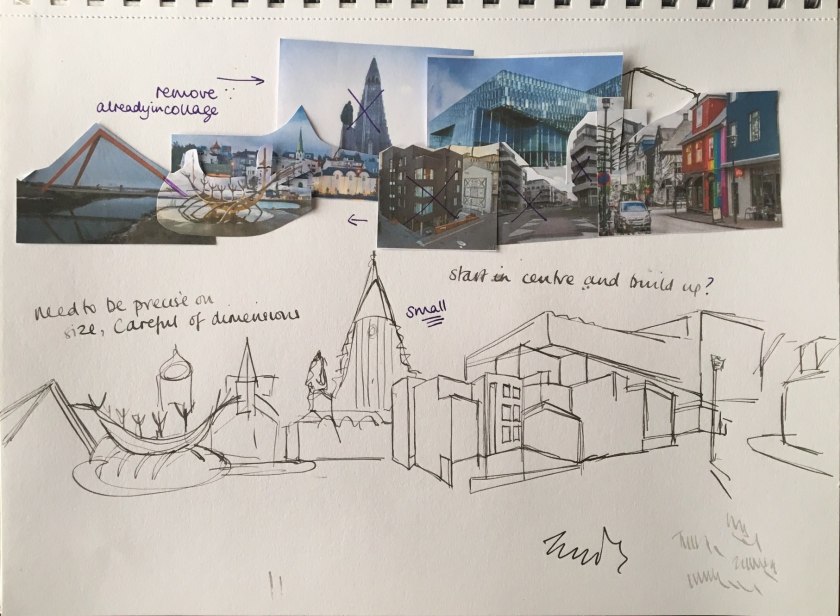 remove
already in collage
start in centre and build up?
need to be precise on
size, careful of dimensions
small